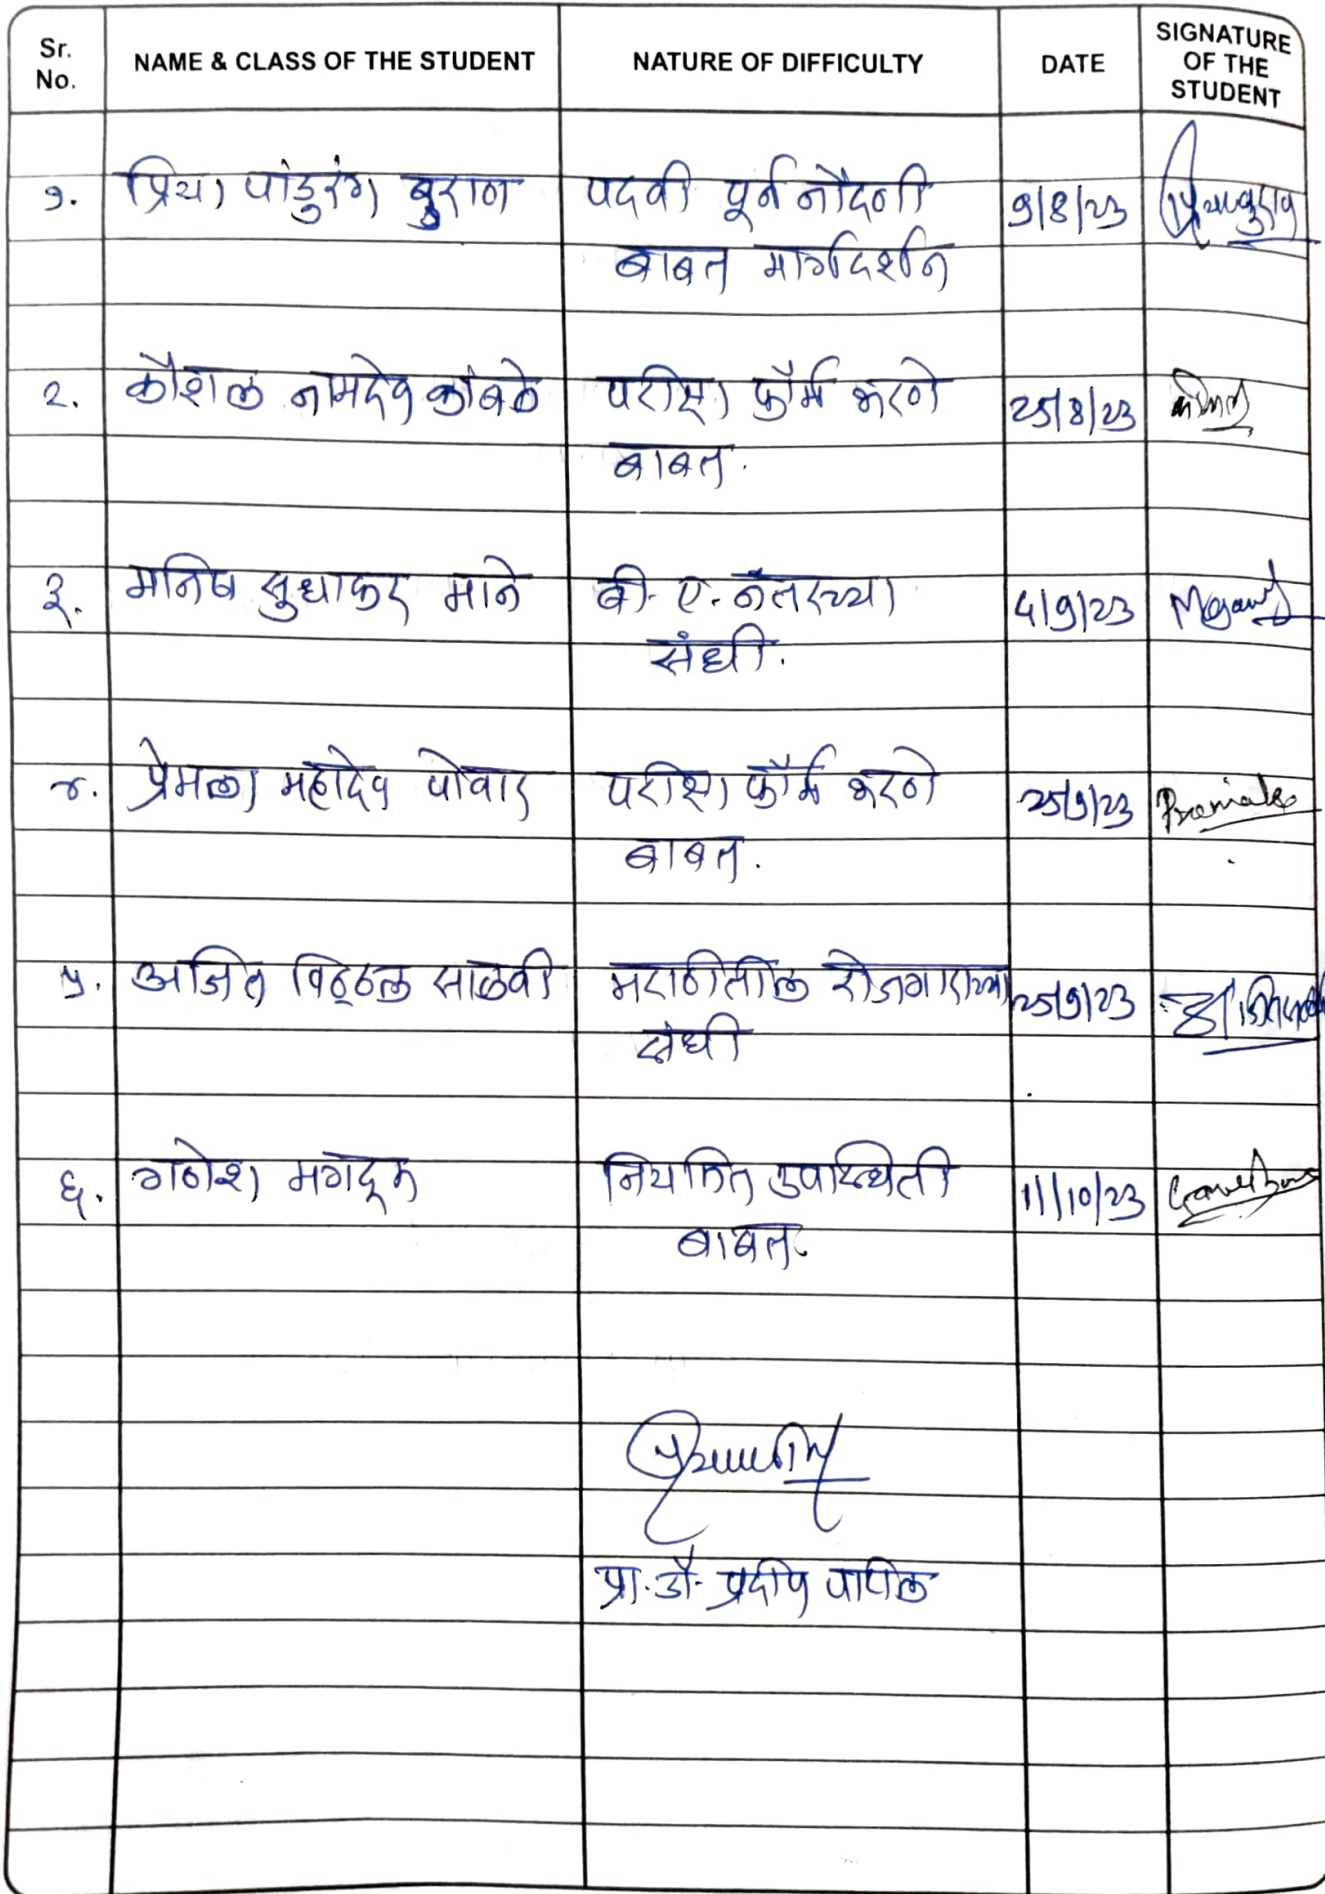 Sr. No. NAME & CLASS OF THE STUDENT NATURE OF DIFFICULTY DATE SIGNATURE OF THE STUDENT
१. प्रिया पांडुरंग बुरान पदवी पूर्व नोंदणी 9/8/23
बाबत मार्गदर्शन
२. कौशल नामदेव कांबळे परीक्षा फॉर्म भरणे 25/8/23
बाबत.
३. मनिष सुधाकर माने बी. ए. नंतरच्या 4/9/23
संधी.
४. प्रेमला महादेव पोवार परीक्षा फॉर्म भरणे 25/9/23 Premala
बाबत.
५. अजित विठ्ठल साळवी मराठीतील रोजगाराच्या 25/9/23
संधी
६. गणेश मगदूम नियमित उपस्थिती 11/10/23
बाबत.
प्रा. डॉ. प्रदीप पाटील